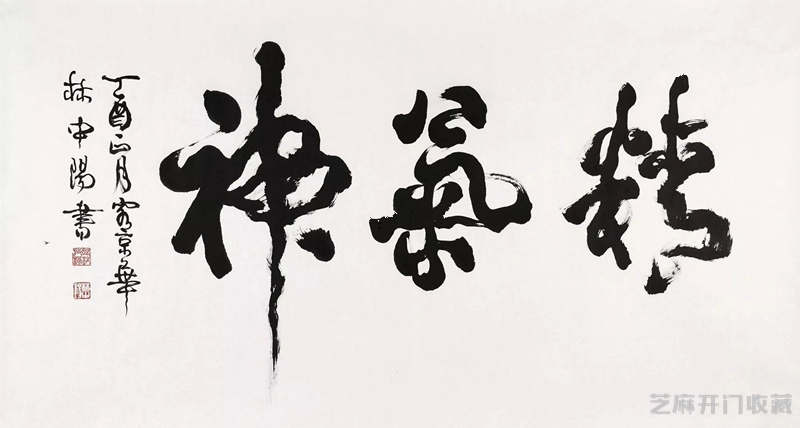 精氣神
丁酉正月客京華
林中陽書
芝麻开门收藏